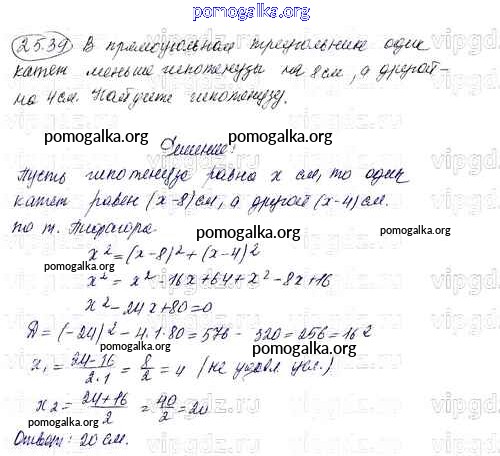 pomogalka.org
25.39 В прямоугольном треугольнике один
катет меньше гипотенузы на 8 см, а другой –
на 4 см. Найдите гипотенузу.
pomogalka.org pomogalka.org
Решение:
Пусть гипотенуза равна x см, то один
катет равен (x-8) см, а другой (x-4) см.
по т. Пифагора.
pomogalka.org
x² = (x-8)² + (x-4)²
pomogalka.org
x² = x² - 16x + 64 + x² - 8x + 16
x² - 24x + 80 = 0
D = (-24)² - 4·1·80 = 576 - 320 = 256 = 16²
pomogalka.org
x₁ = (24-16)/(2·1) = 8/2 = 4 (не удовл усл.)
x₂ = (24+16)/2 = 40/2 = 20
pomogalka.org pomogalka.org
Ответ: 20 см.
vipgdz.com